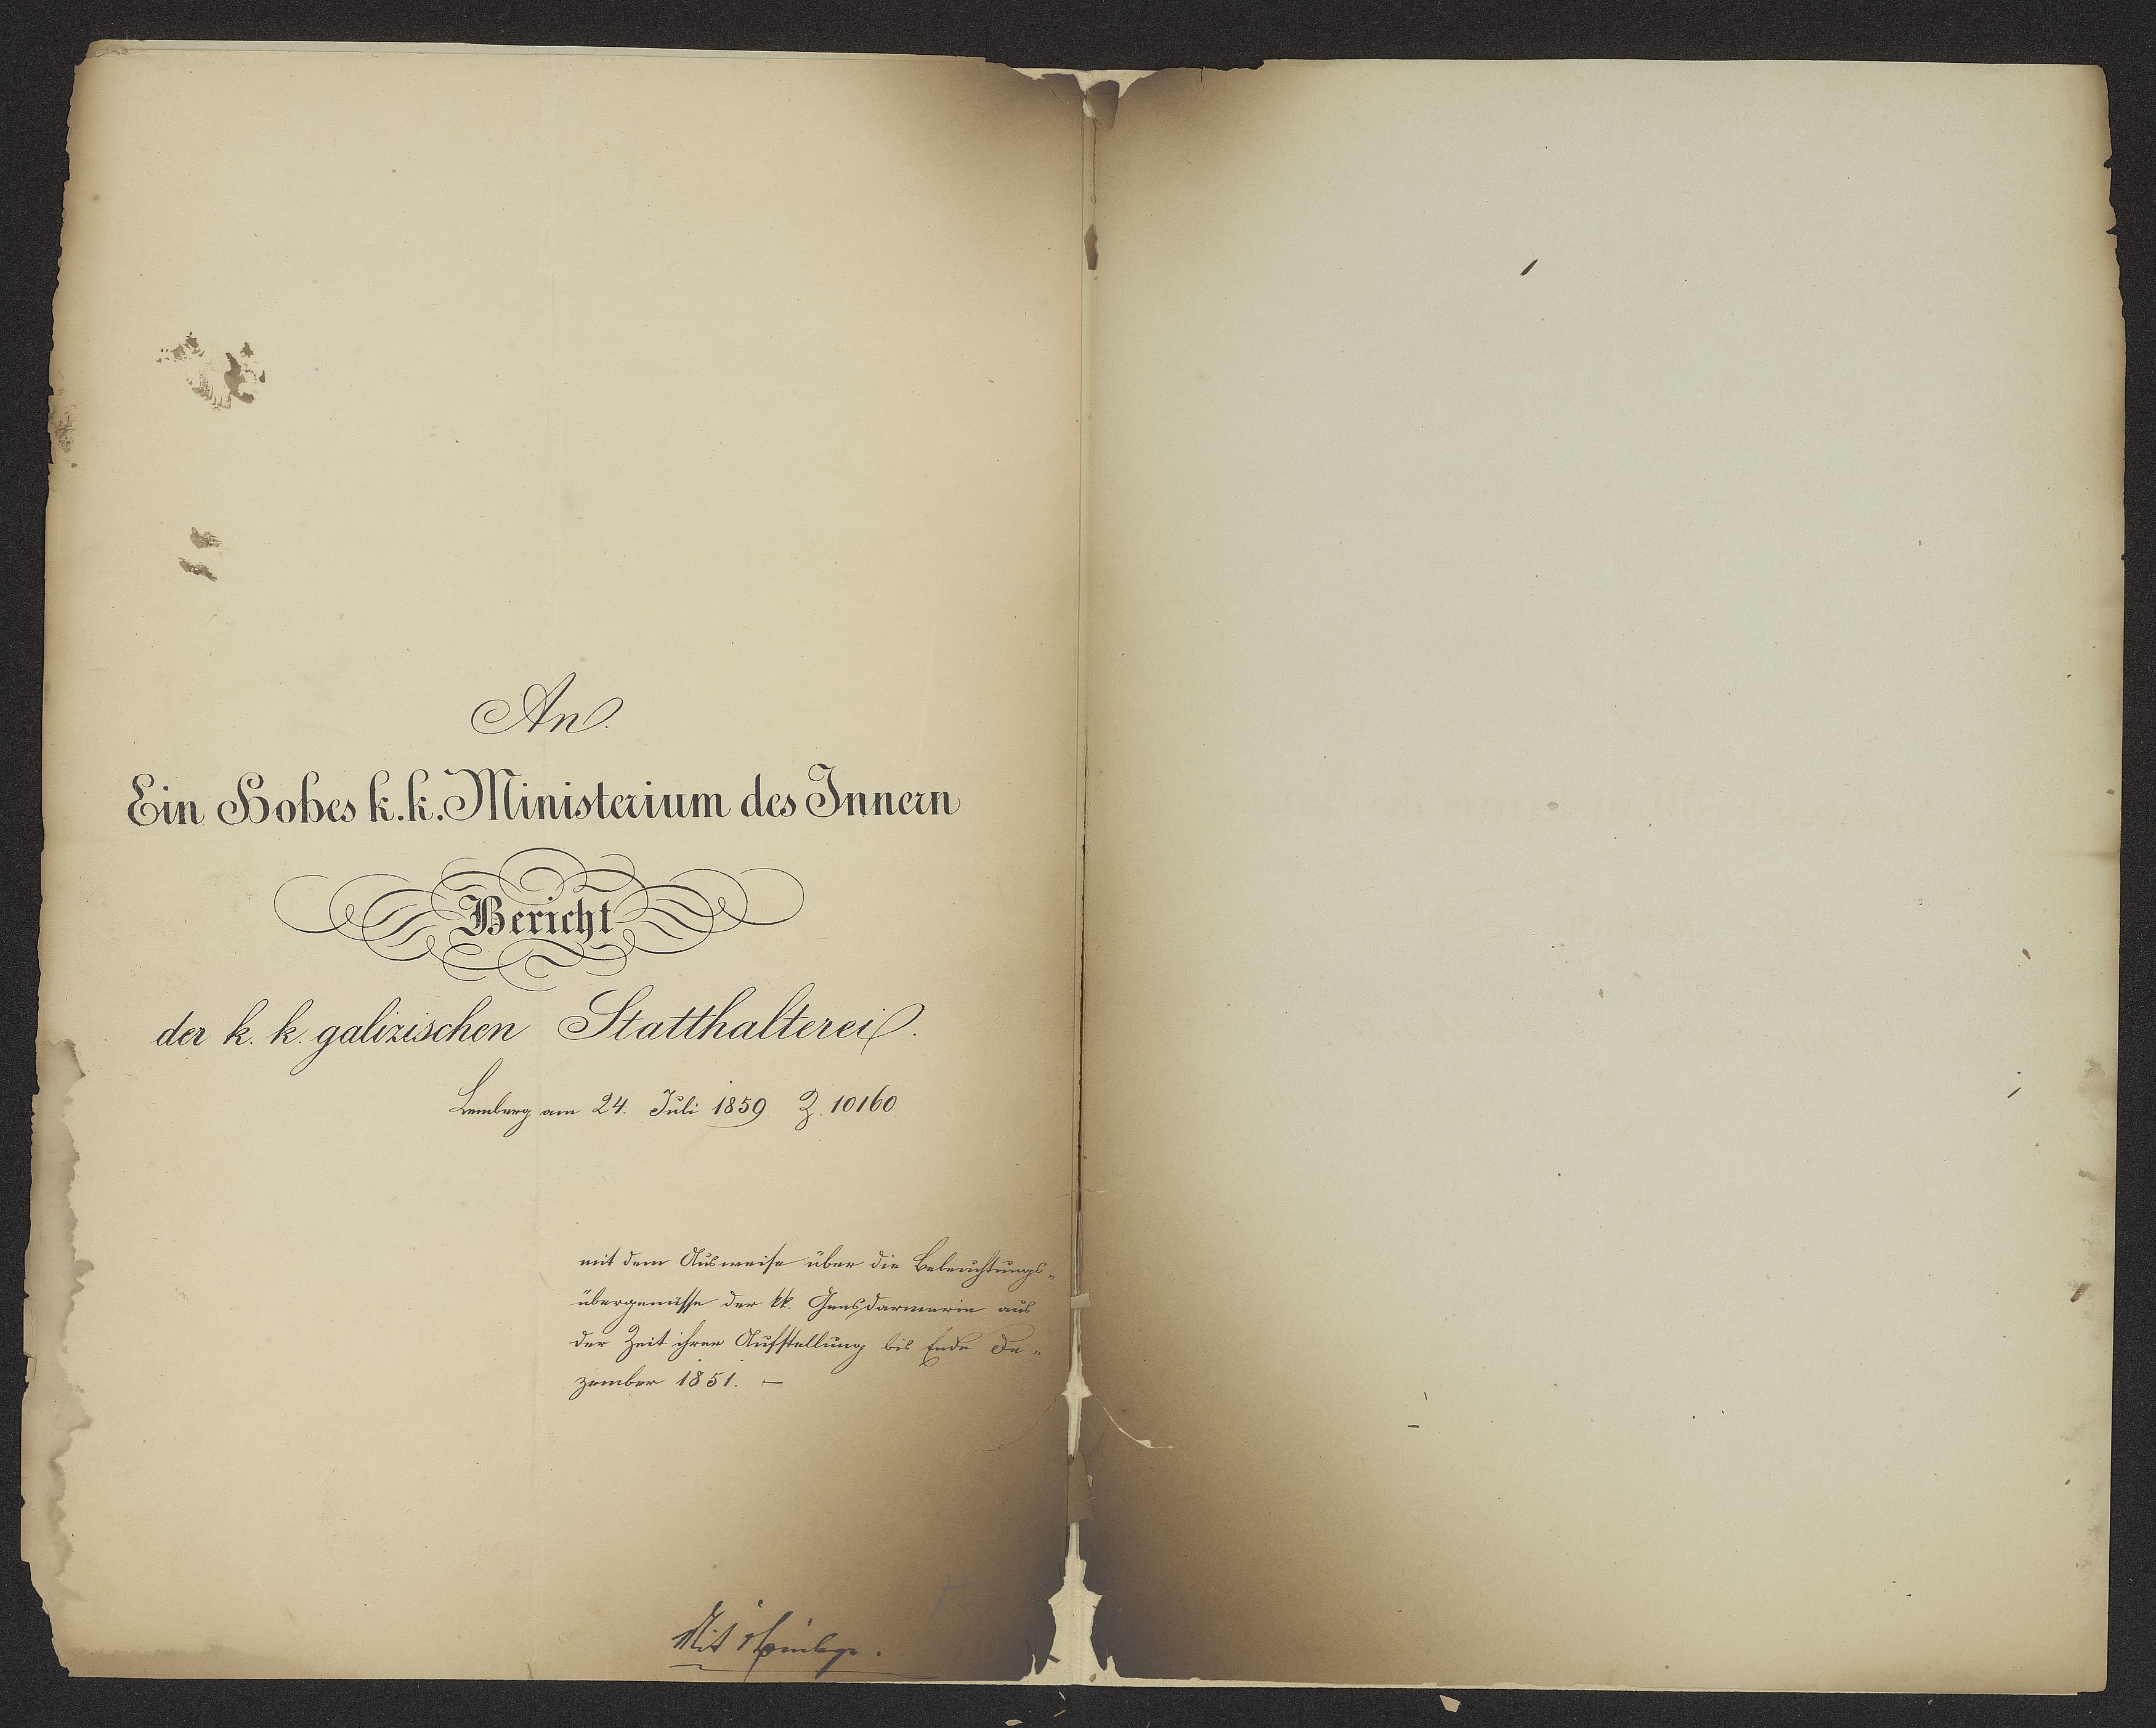 An
Ein Hohes k.k. Ministerium des Innern
Bericht
der k. k. galizischen Statthalterei.
Lemberg am 24. Juli 1859 Z. 10160
mit dem Ausweise über die Beleuchtungs-
übergenüsse der kk. Gensdarmerie aus
der Zeit ihrer Aufstellung bis Ende De-
zember 1851. —
Mit